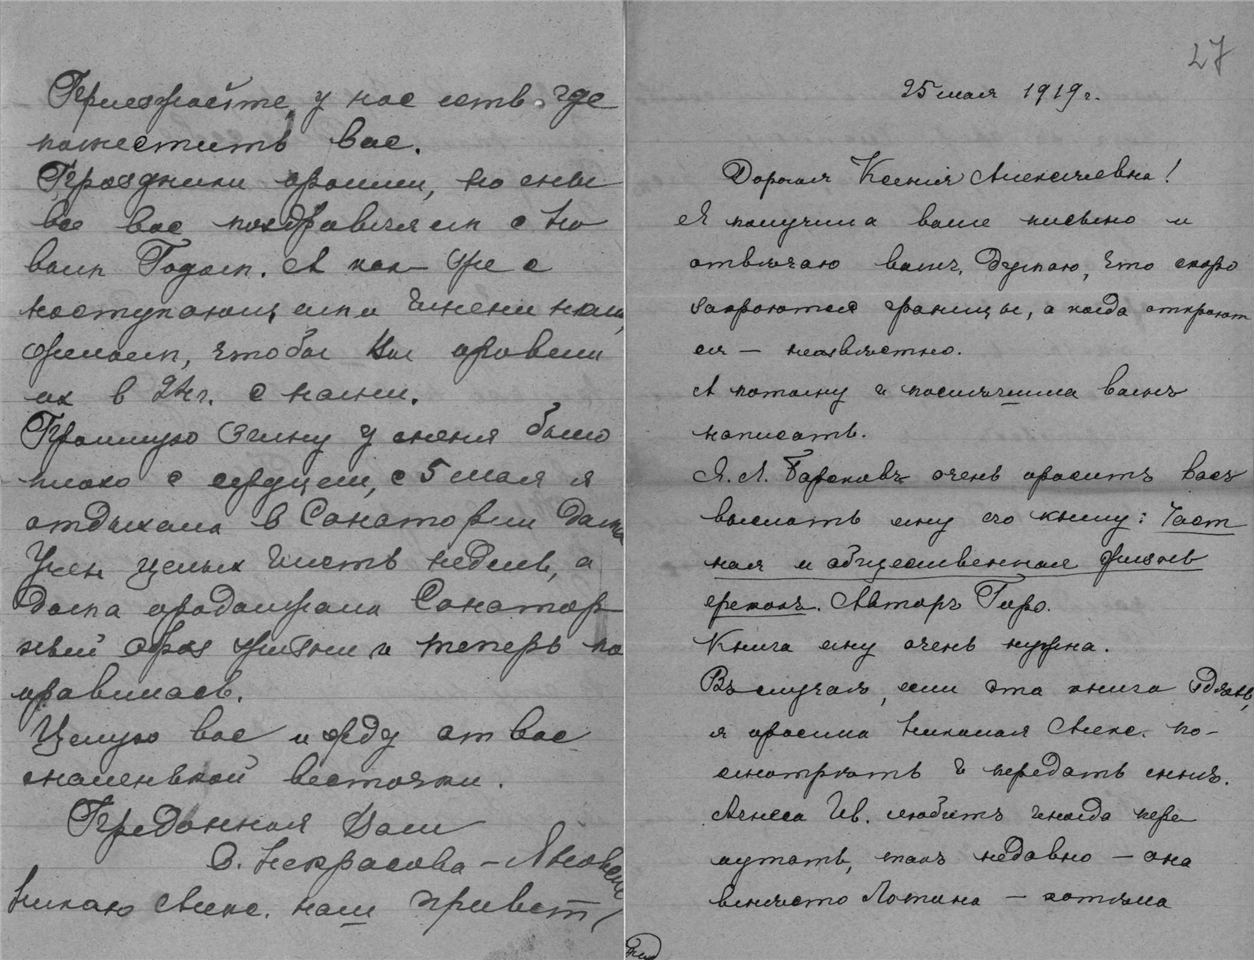 Приезжайте, у нас есть где
поместить вас.
Праздники прошли, но мы
все вас поздравляем с Но
вым Годом. А так же с
наступающими именинами,
желаем, чтобы Вы провели
их в 24г. с нами.
Прошлую зиму у меня было
плохо с сердцем, с 5 мая я
отдыхала в Санатории Дома
Учен целых шесть недель, а
дома продолжала Санатор
ный образ жизни и теперь по
правилась.
Целую вас и жду от вас
маленькой весточки.
Преданная Вам
О. Некрасова –
Никаю Алекс. наш привет
27
25 мая 1919 г.
Дорогая Ксения Алексеевна!
Я получила ваше письмо и
отвѣчаю вамъ. Думаю, что скоро
закроются границы, а когда откроют
ся — неизвѣстно.
А потому и поспѣшила вамъ
написать.
Я. Л. Барсковъ очень проситъ васъ
выслать ему его книгу: Част
ная и общественная жизнь
грековъ. Авторъ Гиро.
Книга ему очень нужна.
Въ случаѣ, если эта книга здѣсь,
я просила Николая Алекс. по-
смотрѣть и передать мнѣ.
Агнеса Ив. любитъ иногда пере
путать, такъ недавно — она
вмѣсто — хотѣла